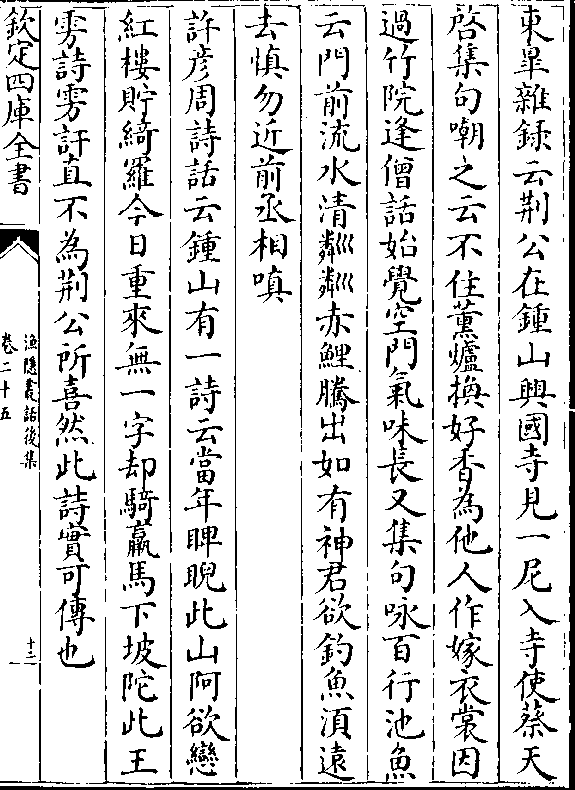 東臯雜録云荆公在鍾山興國寺見一尼入寺使蔡天
啓集句嘲之云不住薰爐換好香為他人作嫁衣裳因
過竹院逢僧話始覺空門氣味長又集句咏百行池魚
云門前流水清粼粼赤鯉騰出如有神君欲釣魚湏遠
去慎勿近前丞相嗔
許彦周詩話云鍾山有一詩云當年睥睨此山阿欲戀
紅樓貯綺羅今日重來無一字却騎羸馬下坡陀此王
雱詩雱訐直不為荆公所喜然此詩實可傳也
欽定四庫全書
漁隱叢話後集
卷二十五
十二